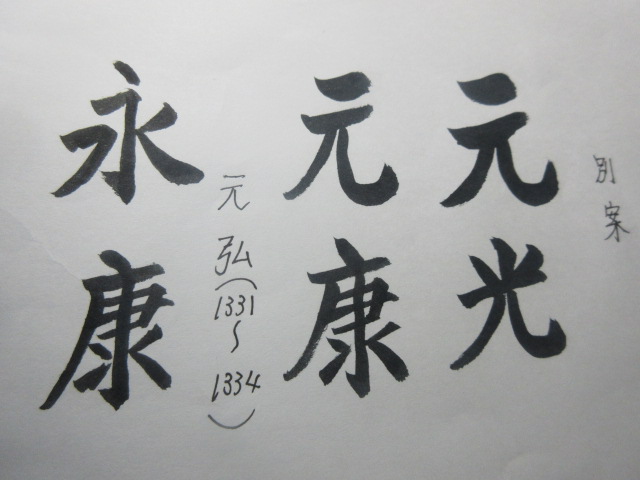 別案
元光
元康
元弘(1331~1334)
永康